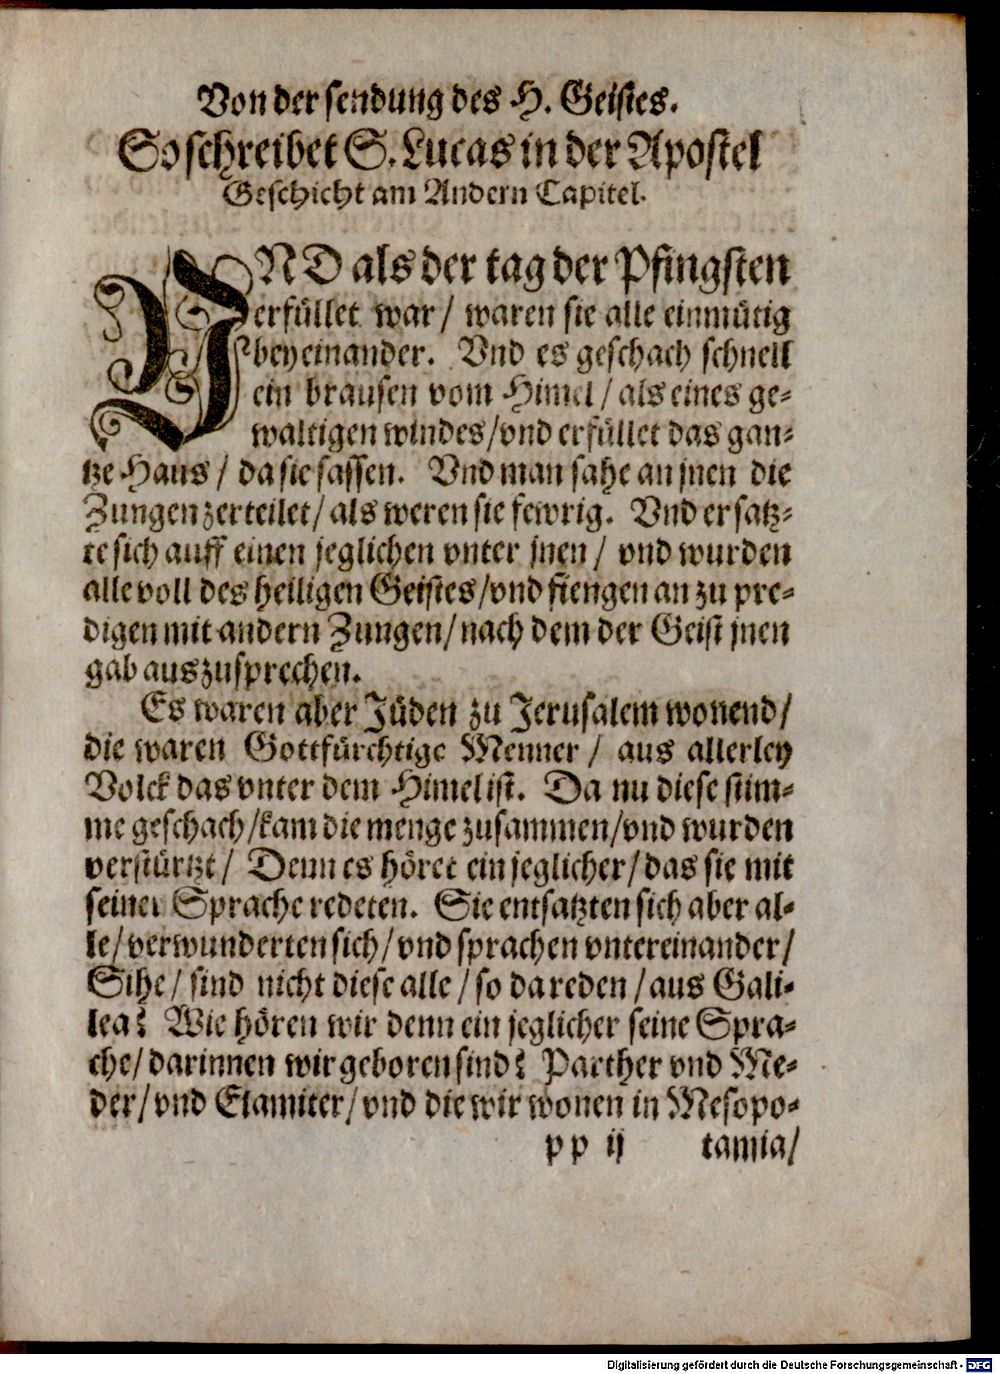 Von der sendung des H. Geistes.
So schreibet S. Lucas in der Apostel
Geschicht am Andern Capitel.
VND als der tag der Pfingsten
erfüllet war / waren sie alle einmütig
beyeinander. Vnd es geschach schnell
ein brausen vom Himel / als eines ge-
waltigen windes / vnd erfüllet das gan-
tze Haus / da sie sassen. Vnd man sahe an jnen die
Zungen zerteilet / als weren sie fewrig. Vnd er satz-
te sich auff einen jeglichen vnter jnen / vnd wurden
alle voll des heiligen Geistes / vnd fiengen an zu pre-
digen mit andern Zungen / nach dem der Geist jnen
gab auszusprechen.
Es waren aber Jüden zu Jerusalem wonend /
die waren Gottfürchtige Menner / aus allerley
Volck das vnter dem Himel ist. Da nu diese stim-
me geschach / kam die menge zusammen / vnd wurden
verstürtzt / Denn es höret ein jeglicher / das sie mit
seiner Sprache redeten. Sie entsatzten sich aber al-
le / verwunderten sich / vnd sprachen vntereinander /
Sihe / sind nicht diese alle / so da reden / aus Gali-
lea? Wie hören wir denn ein jeglicher seine Spra-
che / darinnen wir geboren sind? Parther vnd Me-
der / vnd Elamiter / vnd die wir wonen in Mesopo-
pp ij tamia /
Digitalisierung gefördert durch die Deutsche Forschungsgemeinschaft - DFG